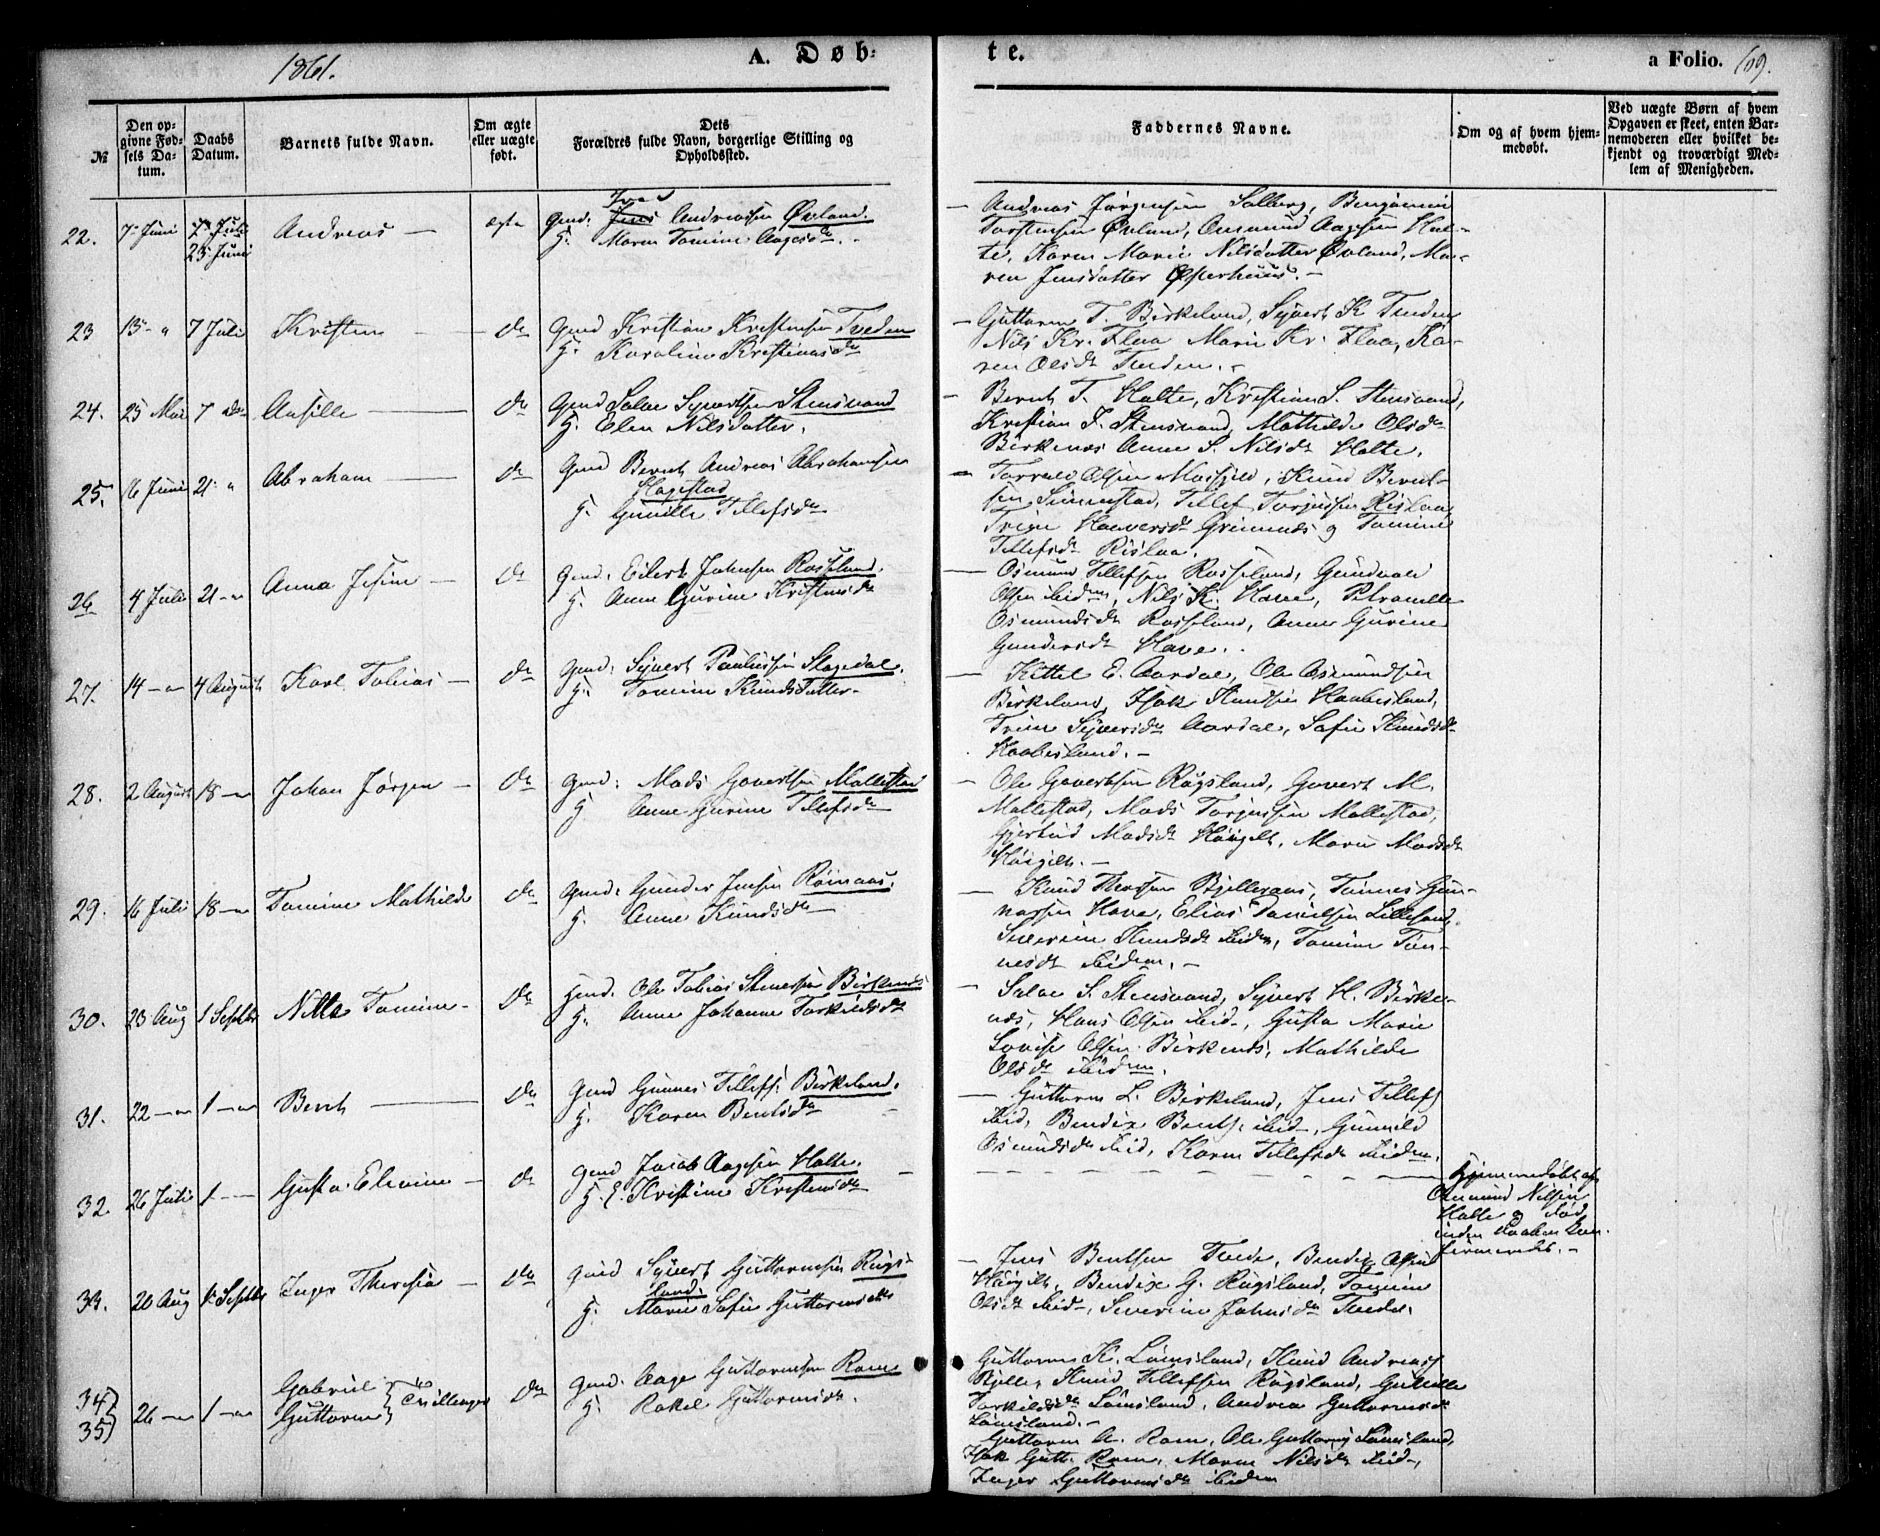 1861.
A. Døb-
te.
a Folio. 109.
№
Den op-
givne Fød-
sels Da-
tum.
Daabs
Datum.
Barnets fulde Navn.
Om ægte
eller uægte
født.
Dets
Forældres fulde Navn, borgerlige Stilling og
Opholdssted.
Faddernes Navne.
Om og af hvem hjem-
medøbt.
Ved uægte Børn af hvem
Opgaven er skeet, enten Bar-
nemoderen eller hvilket be-
kjendt og troværdigt Med-
lem af Menigheden.
22.
7de Juni
7de Juli
23 Juni
Andreas —
ægte
Gmd: Jens Andreassen Øvland.
H. Maren Tomine Aagesdtr. -
— Andreas Jørgensen Solberg, Benjamin
Torstensen Øvland, Osmund Aagesen Hal-
te, Karen Marie Nilsdatter Øvland, Ma-
ren Jensdatter Østerhuus. -
23
13 - "
7 Juli
Kristen —
do
Gmd Kristian Kristensen Tveden
H. Karoline Kristinasdtr
— Guttorm T. Birkeland, Syvert K Tveden
Nils Kr. Flaa Marie Kr. Flaa, Ka-
ren Olsdt Tveden. -
24.
25 Mai
7 do
Aasille —
do
Gmd Salve Syvertsen Stensvand
H. Elen Nilsdatter.
— Bernt T. Halte, Kristian S. Stensvand,
Kristian F. Stensvand, Mathilde Olsdtr
Birkenæs Anne S. Nilsdt Halte.
25.
16 Juni
21 - "
Abraham —
do
Gmd Bernt Andreas Abrahamsen
Hagestad
H. Gunille Tellefsdtr
— Torvald Olsen Mosfjeld, Knud Bernt-
sen Simenstad, Tellef Torjussen Rislaa,
Trine Haaversdt Grimnæs og Tomine
Tellefsdt Rislaa.
26
4 Juli
21 - "
Anna Jesine —
do
Gmd: Eilert Johnsen Rosseland.
H. Anne Gurine Kristensdtr
— Osmund Tellefsen Rosseland, Gundvald
Olsen ibidem, Nils K. Have, Petronelle
Osmundsdt Rosseland, Anne Gurine
Gundersdt Have.
27.
14 - "
4 August
Karl Tobias —
do
Gmd: Syvert Paulussen Slagedal.
H. Tomine Knudsdatter -
— Kittel E. Aardal, Ole Osmundsen
Birkeland, Isak Knudsen Haabesland,
Trine Syversdtr Aardal, Sofie Knudsdtr
Haabesland. -
28.
2 August
18 - "
Johan Jørgen —
do
Gmd: Mads Govertsen Mollestad
H Anne Gurine Tellefsdtr
— Ole Govertsen Rugsland, Govert M.
Mollestad, Mads Torjussen Mollestad,
Gjertrud Madsdt Høigilt, Maren Madsdt
Høigilt. -
29.
16 Juli
18 - "
Tomine Mathilde
do
Gmd: Gunder Jensen Røinaas.
H. Anne Knudsdtr
— Knud Thorsen Bjelleraas, Tønnes Gun-
narsen Have, Elias Danielsen Lillesand,
Severine Knudsdt ibidem, Tomine Tøn-
nesdt ibidem. -
30.
23 Aug
1 Septbr
Nille Tomine -
do
Gmd: Ole Tobias Stenersen Birkenæs
H. Anne Johanne Torkildsdtr
— Salve S. Stensvand, Syvert H. Birke-
næs, Hans Olsen ibid -, Gusta Marie
Lovise Olsen Birkenæs, Mathilde
Olsdt ibidem.
31.
22 - "
1 - "
Bent —
do
Gmd Gunnes Tellefs. Birkeland.
H. Karen Bentsdtr
— Guttorm L. Birkeland, Jens Tellefs
ibid, Bendix Bents. ibid -, Gunvild
Osmundsdtr ibid, Karen Tellefsdt ibidem.
32.
26 Juli
1 - -
Gusta Elevine —
do
Gmd Jacob Aagesen Halte. —
H. E. Kristine Kristensdtr
Hjemmedøbt af
Osmund Nilsen
Halte og død
inden Daaben kon-
firmeredes. -
33.
20 Aug
1 Septbr
Inger Theresia —
do
Gmd Syvert Guttormsen Rugs-
land.
H. Maren Sofie Guttormsdtr
— Jens Bentsen Tvede, Bendix Olsen
Høigilt, Bendix G. Rugsland, Tomine
Olsdt ibid -, Severine Johnsdtr Tvede.
34)
35)
26 - "
1 - "
Gabriel
Guttorm
} Tvillinger
do
Gmd: Aage Guttormsen Rom
H. Rakel Guttormsdtr.
Guttorm K. Lømsland, Knud Andreass
Kjelles Knud Tellefsen Rugsland, Gunille
Torkildsdt Lømsland, Andrea Guttormsdt
Lømsland. -
Guttorm A. Rom, Ole Guttorms Lømsland,
Isak Gutt. Rom, Maren Nilsdt ibid -,
Inger Guttormsdt ibidem